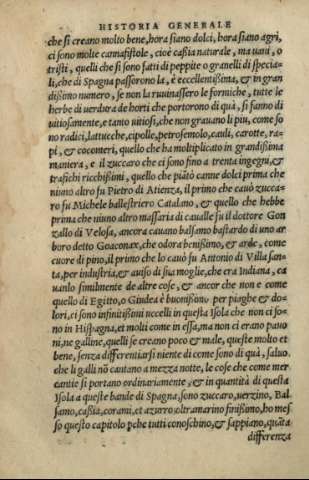 HISTORIA GENERALE
che si creano molto bene, hora siano dolci, hora siano agri,
ci sono molte cannafistole, cioè caßia naturale, ma vani, o
tristi, quelli che si sono fatti di peppite o granelli di specia-
li, che di Spagna passorono la, è eccellentißima, & in gran
dißimo numero, se non la ruvinassero le formiche, tutte le
herbe di verdura de horti che portorono di quà, si fanno di
vitiosamente, e tanto vitiosi, che non gravano li piu, come so
no radici, lattucche, cipolle, petrosemolo, cauli, carotte, ra-
pi, & coconeri, quello che ha moltiplicato in grandißima
maniera, e il zuccaro che ci sono fino a trenta ingegni, &
trafichi ricchißimi, quello che piãtò canne dolci prima che
niuno altro fu Pietro di Atienza, il primo che cavò zucca-
ro fu Michele ballestriero Catalano, & quello che hebbe
prima che niuno altro massaria di cavalle fu il dottore Gon
zallo di Velosa, ancora cavano balsamo bastardo di uno ar
boro detto Goaconax, che odora benißimo, & arde, come
cuore di pino, il primo che lo cavò fu Antonio di Villa san-
ta, per industria, & aviso di sua moglie, che era Indiana, ca
vanlo similmente de altre cose, & ancor che non e come
quello di Egitto, o Giudea è buonißimo per piaghe & do-
lori, ci sono infinitißimi uccelli in questa Isola che non ci so-
no in Hispagna, et molti come in essa, ma non ci erano pavo
ni, ne galline, quelli se creano poco & male, queste molto et
bene, senza differentiarsi niente di come sono di quà, salvo
che li galli nõ cantano a mezza notte, le cose che come mer
cantie si portano ordinariamente, & in quantità di questa
Isola a queste bande di Spagna, sono zuccaro, verzino, Bal
samo, caßia, corami, et azurro oltramarino finißimo, ho mes
so questo capitolo pche tutti conoschino, & sappiano, quãta
differenza